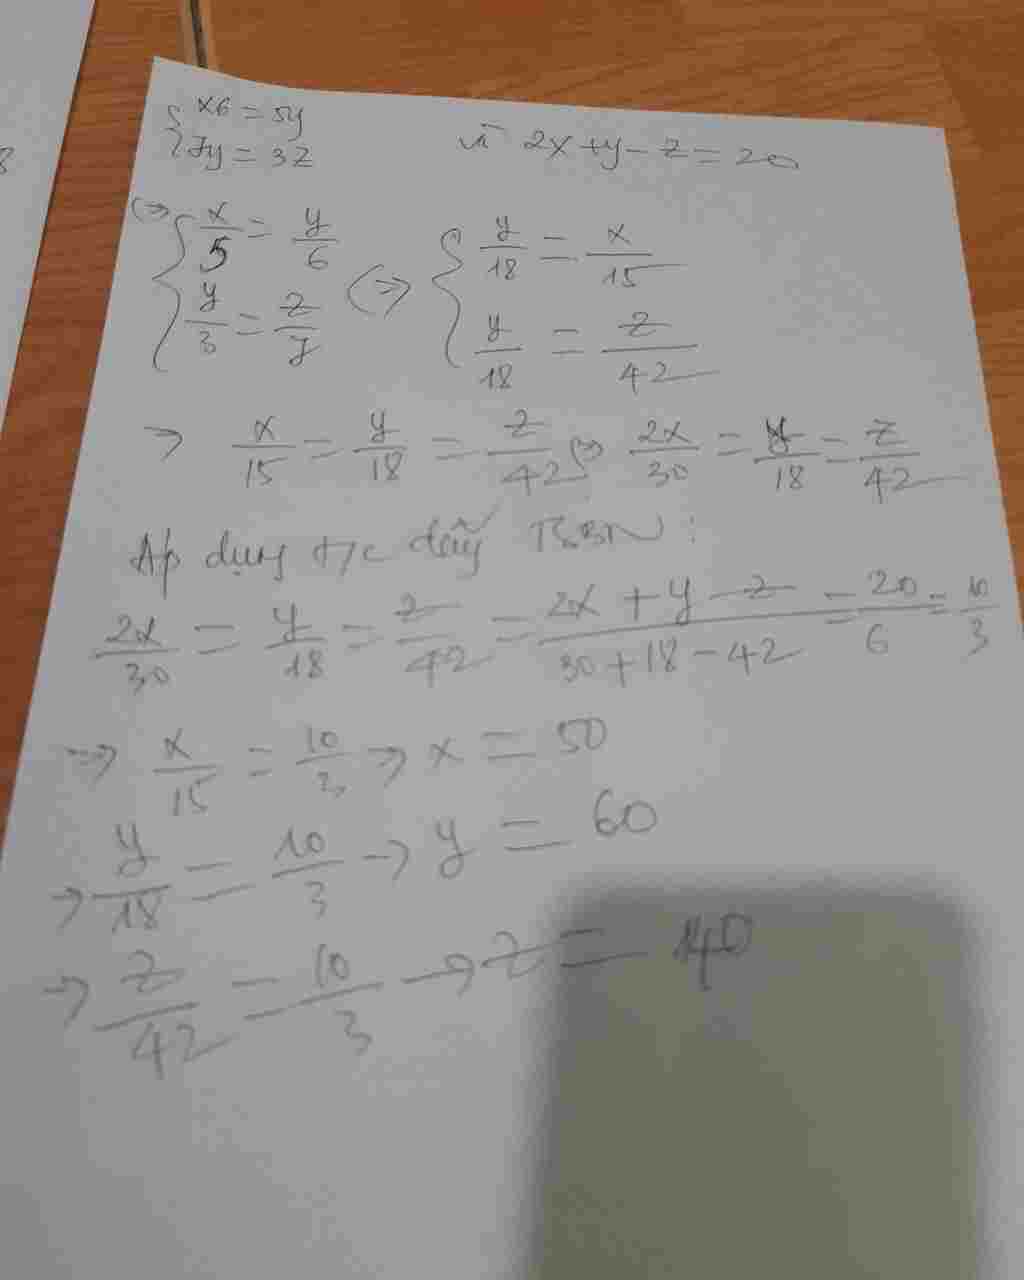 x6 = 5y
7y = 3z và 2x + y - z = 20
<=> { x/5 = y/6 <=> { y/18 = x/15
y/3 = z/7 y/18 = z/42
=> x/15 = y/18 = z/42 <=> 2x/30 = y/18 = z/42
Áp dụng t/c dãy TSBN:
2x/30 = y/18 = z/42 = (2x + y - z)/(30 + 18 - 42) = 20/6 = 10/3
=> x/15 = 10/3 -> x = 50
-> y/18 = 10/3 -> y = 60
-> z/42 = 10/3 -> z = 140